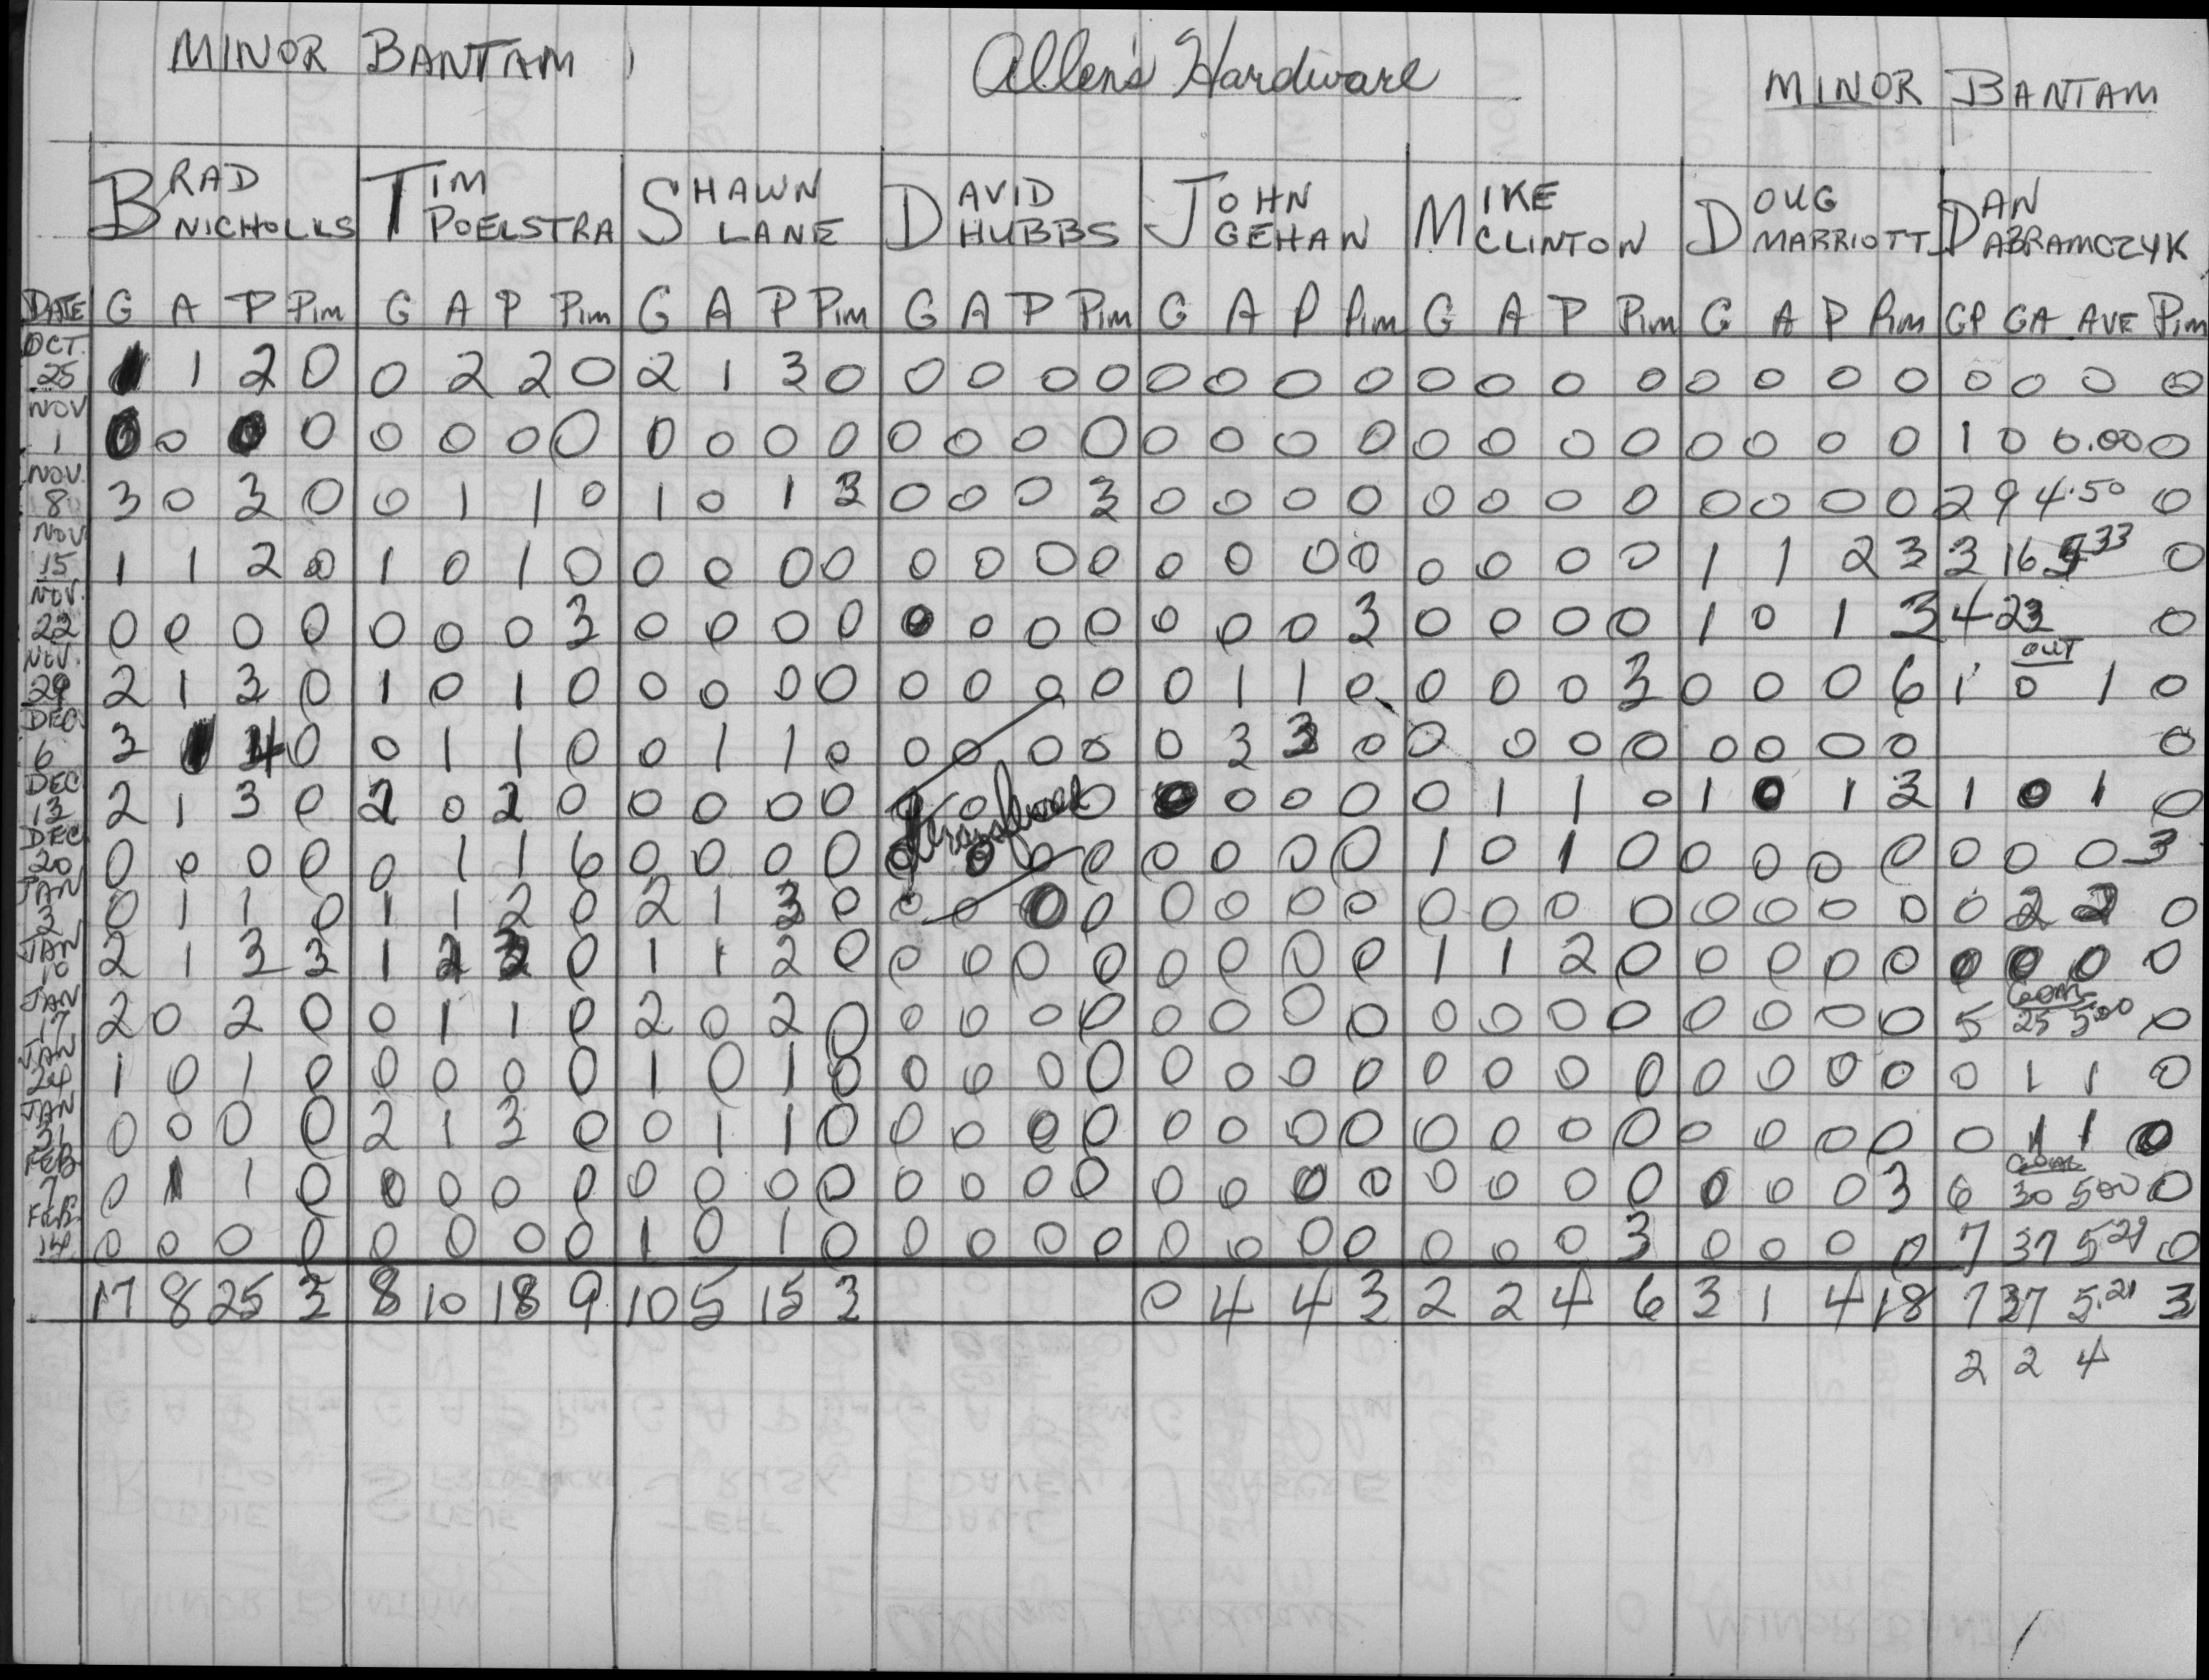 MINOR BANTAM Allen's Hardware MINOR BANTAM
BRAD NICHOLLS TIM POELSTRA SHAWN LANE DAVID HUBBS JOHN GEHAN MIKE CLINTON DOUG MARRIOTT DAN ABRAMCZYK
DATE G A P Pim G A P Pim G A P Pim G A P Pim G A P Pim G A P Pim G A P Pim GP GA AVE Pim
OCT. 25 1 1 2 0 0 2 2 0 2 1 3 0 0 0 0 0 0 0 0 0 0 0 0 0 0 0 0 0 0 0 0 0
NOV 1 0 0 0 0 0 0 0 0 0 0 0 0 0 0 0 0 0 0 0 0 0 0 0 0 0 0 0 0 1 0 0.00 0
NOV. 8 3 0 3 0 0 1 1 0 1 0 1 3 0 0 0 3 0 0 0 0 0 0 0 0 0 0 0 0 2 9 4.50 0
NOV 15 1 1 2 0 1 0 1 0 0 0 0 0 0 0 0 0 0 0 0 0 0 0 0 0 1 1 2 3 3 16 5.33 0
NOV. 22 0 0 0 0 0 0 0 3 0 0 0 0 0 0 0 0 0 0 0 3 0 0 0 0 1 0 1 3 4 23 0
NOV. 29 2 1 3 0 1 0 1 0 0 0 0 0 0 0 0 0 0 1 1 0 0 0 0 3 0 0 0 6 OUT 1 0 1 0
DEC. 6 3 1 4 0 0 1 1 0 0 1 1 0 0 0 0 0 0 3 3 0 0 0 0 0 0 0 0 0 0
DEC 13 2 1 3 0 2 0 2 0 0 0 0 0 0 0 0 0 0 0 0 0 1 1 0 1 0 1 3 1 0 1 0
transferred
DEC 20 0 0 0 0 0 1 1 6 0 0 0 0 0 0 0 0 0 0 0 0 1 0 1 0 0 0 0 0 0 0 0 3
JAN 3 0 1 1 0 1 1 2 0 2 1 3 0 0 0 0 0 0 0 0 0 0 0 0 0 0 0 0 0 0 2 2 0
JAN 10 2 1 3 3 1 2 3 0 1 1 2 0 0 0 0 0 0 0 0 0 1 1 2 0 0 0 0 0 0 0 0 0
JAN 17 2 0 2 0 0 1 1 0 2 0 2 0 0 0 0 0 0 0 0 0 0 0 0 0 0 0 0 0 5 25 5.00 0
JAN 24 1 0 1 0 0 0 0 0 1 0 1 0 0 0 0 0 0 0 0 0 0 0 0 0 0 0 0 0 0 1 1 0
JAN 31 0 0 0 0 2 1 3 0 0 1 1 0 0 0 0 0 0 0 0 0 0 0 0 0 0 0 0 0 0 1 1 0
FEB 7 0 1 1 0 0 0 0 0 0 0 0 0 0 0 0 0 0 0 0 0 0 0 0 0 0 0 0 3 6 30 500 0
FEB. 14 0 0 0 0 0 0 0 0 1 0 1 0 0 0 0 0 0 0 0 0 0 0 0 3 0 0 0 0 7 37 5 29 0
17 8 25 3 8 10 18 9 10 5 15 3 0 4 4 3 2 2 4 6 3 1 4 18 7 37 5.21 3
2 2 4